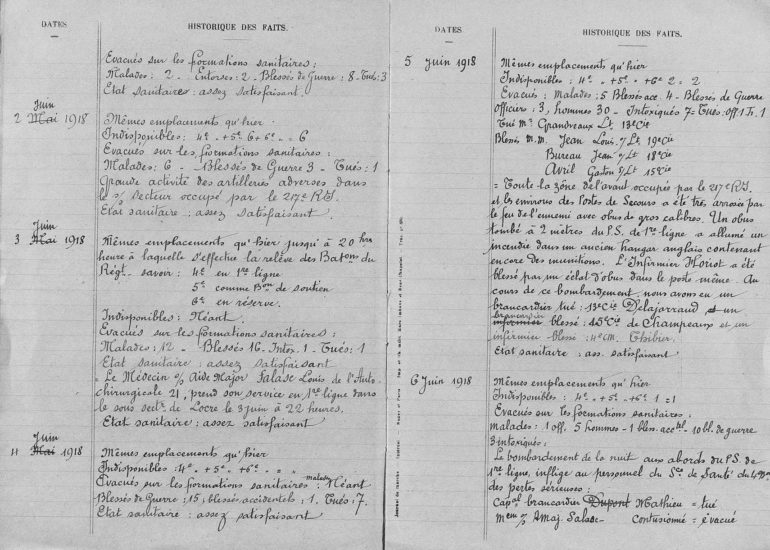 DATES
HISTORIQUE DES FAITS.
Evacués sur les formations sanitaires:
Malades: 2 - Entorses: 2 - Blessés de Guerre: 8 - Tués: 3
Etat sanitaire: assez satisfaisant.
Juin
2 Mai 1918
Mêmes emplacements qu'hier.
Indisponibles: 4e - +5e 6 +6e - = 6
Evacués sur les formations sanitaires:
Malades: 6 - Blessés de Guerre 3 - Tués: 1
Grande activité des artilleries adverses dans
le s/ secteur occupé par le 217e R.I.
Etat sanitaire: assez satisfaisant.
Juin
3 Mai 1918
Mêmes emplacements qu'hier jusqu'à 20 hrs
heure à laquelle s'effectue la relève des Batons du
Régt. savoir: 4e en 1re ligne
5e comme Bon de soutien
6e en réserve.
Indisponibles: Néant.
Evacués sur les formations sanitaires:
Malades: 12 - Blessés 16 - Intox. 1 - Tués: 1
Etat sanitaire: assez satisfaisant
= Le Médecin s/ Aide Major Salasc Louis de l'Auto-
chirurgicale 21, prend son service en 1re ligne dans
le sous sectr. de Locre le 3 juin à 22 heures.
Etat sanitaire: assez satisfaisant
Juin
4 Mai 1918
Mêmes emplacements qu'hier
Indisponibles: 4e - +5e - +6e - " "
Evacués sur les formations sanitaires: malades Néant
Blessés de Guerre: 15, blessés accidentels: 1. Tués: 7.
Etat sanitaire: assez satisfaisant
DATES
HISTORIQUE DES FAITS.
5 Juin 1918
Mêmes emplacements qu'hier
Indisponibles: 4e - +5e - +6e 2 = 2
Evacués: Malades: 5 Blessés acc. 4 - Blessés de Guerre
Officiers: 3, hommes 30 - Intoxiqués 7 = Tués: Off. 1
Tué Mr Grandvaux Lt. 13e Cie
Blessés M.M. Jean Louis s/Lt 19e Cie
Bureau Jean s/Lt 18e Cie
Avril Gaston s/Lt 15e Cie
= Toute la zône de l'avant occupée par le 217e R.I.
et les environs des Postes de Secours a été très arrosée par
le feu de l'ennemi avec obus de gros calibres. Un obus
tombé à 2 mètres du P.S. de 1re ligne a allumé un
incendie dans un ancien hangar anglais contenant
encore des munitions. L'Infirmier Horiot a été
blessé par un éclat d'obus dans le poste même. Au
cours de ce bombardement, nous avons eu un
brancardier tué: 13e Cie Delajarraud et un
brancardier
infirmier blessé: 15e Cie de Champeaux et un
infirmier blessé 4e C.M. Thibier.
Etat sanitaire: ass. satisfaisant
6 Juin 1918
Mêmes emplacements qu'hier
Indisponibles: 4e - +5e - +6e 1 = 1
Evacués sur les formations sanitaires:
malades: 1 off. 5 hommes - 1 bless. acctel - 10 bl. de guerre
3 intoxiqués:
Le bombardement de la nuit aux abords du P.S. de
1re ligne, inflige au personnel du Sce de Santé du
des pertes sérieuses:
Capal brancardier Dupont Mathieu = tué
Mem s/ Amaj. Salasc - Contusionné = évacué